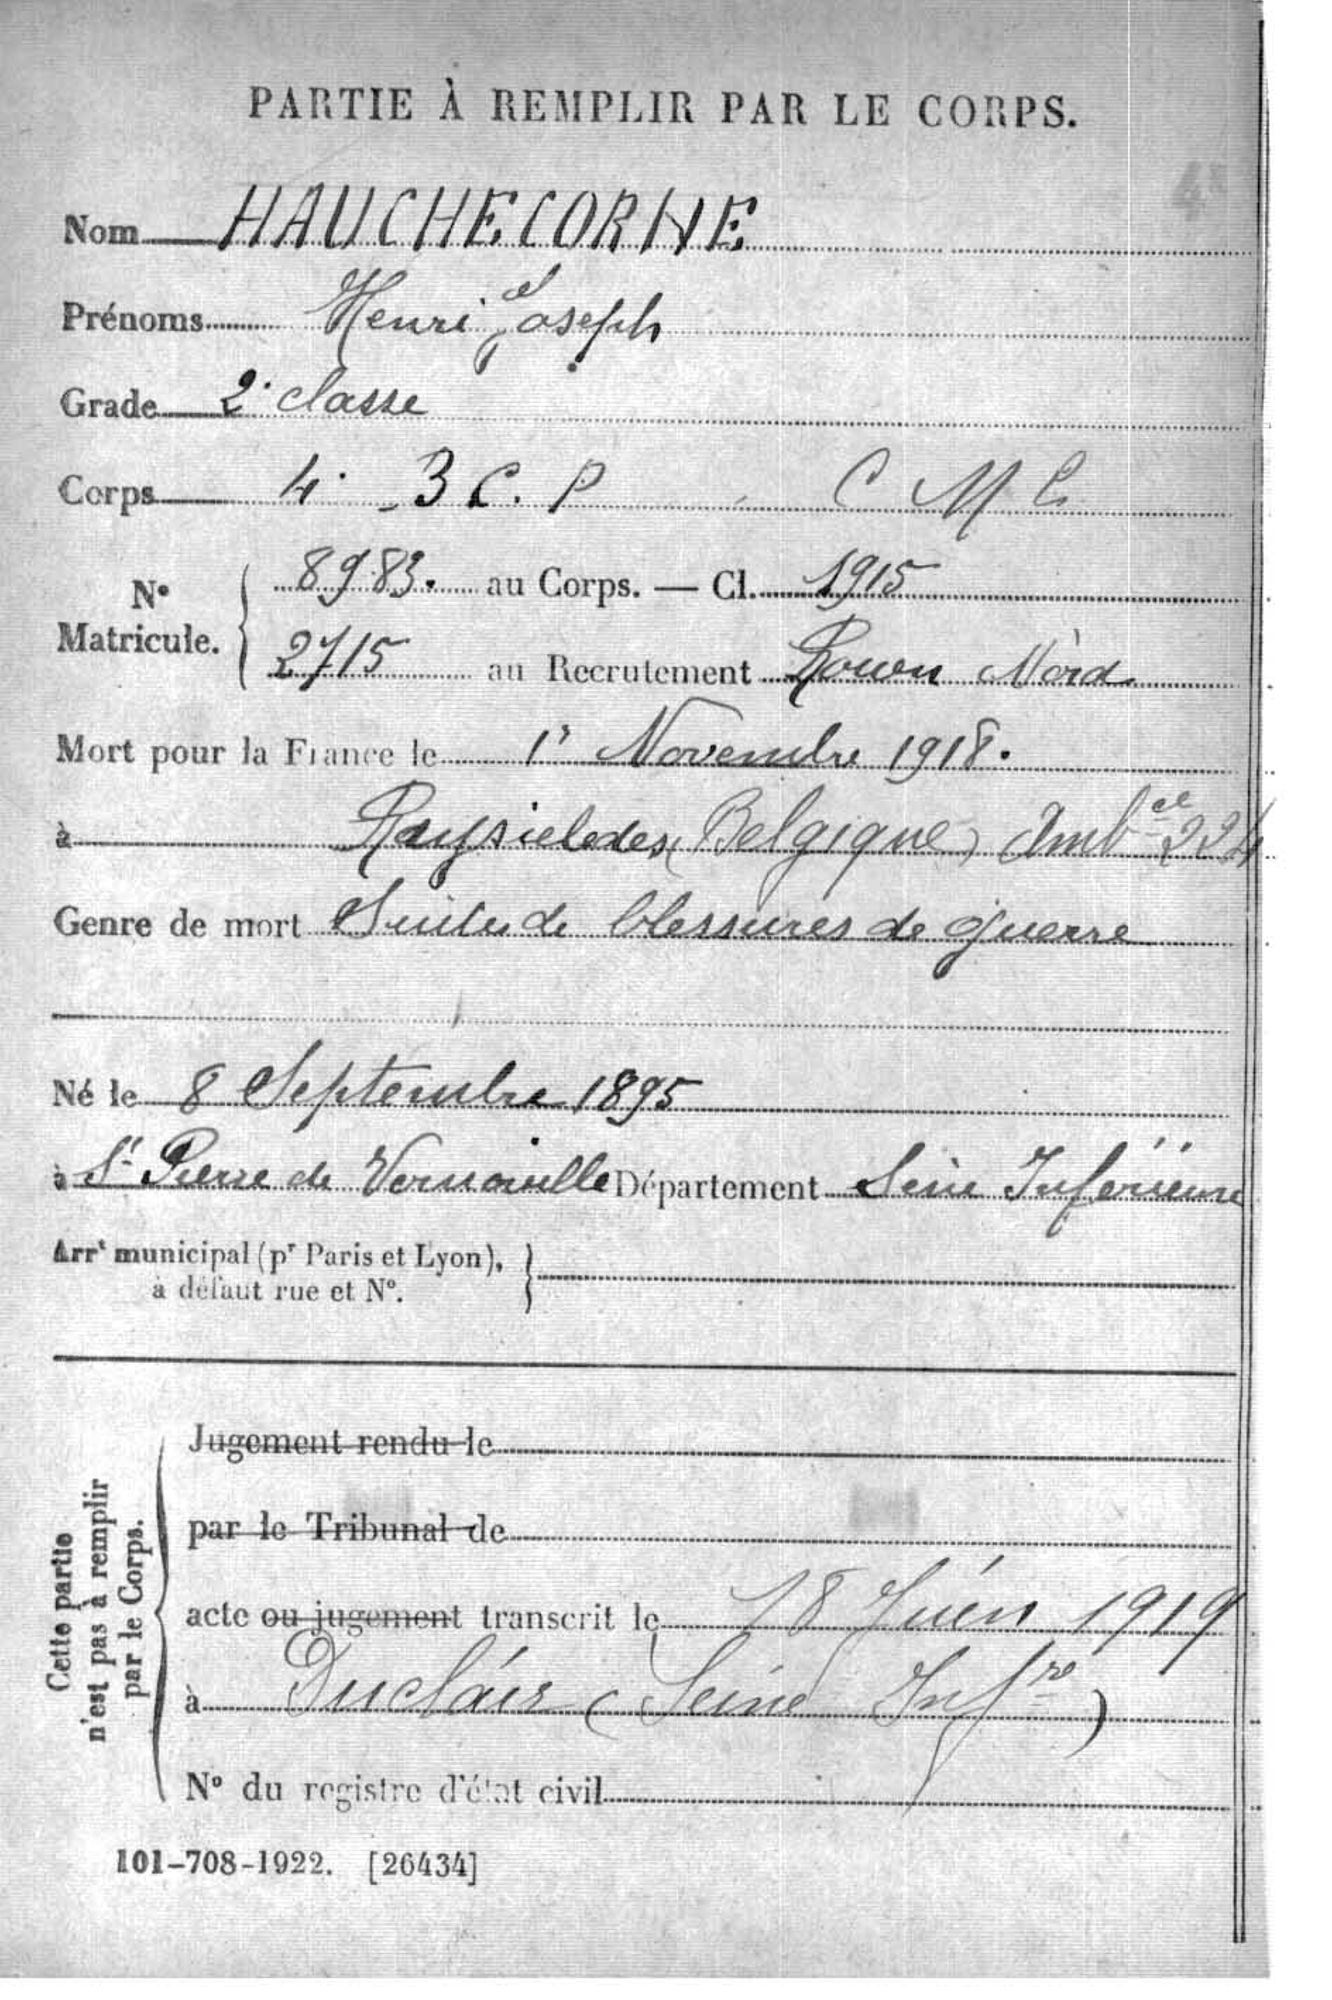 PARTIE À REMPLIR PAR LE CORPS.
Nom HAUCHECORNE
Prénoms Henri Joseph
Grade 2e classe
Corps 4e B C. P C M C
N° Matricule. 8983. au Corps. — Cl. 1915
2715 au Recrutement Rouen Nord
Mort pour la France le 1r Novembre 1918.
à Ruysieledes (Belgique) Ambce 224
Genre de mort Suites de blessures de guerre
Né le 8 Septembre 1895
à St Pierre de Département Seine Inférieure
Arrt municipal (pr Paris et Lyon),
à défaut rue et N°.
Cette partie
n'est pas à remplir
par le Corps.
Jugement rendu le
par le Tribunal de
acte ou jugement transcrit le 18 Juin 1919
à Duclair (Seine Infre)
N° du registre d'état civil
101-708-1922. [26434]